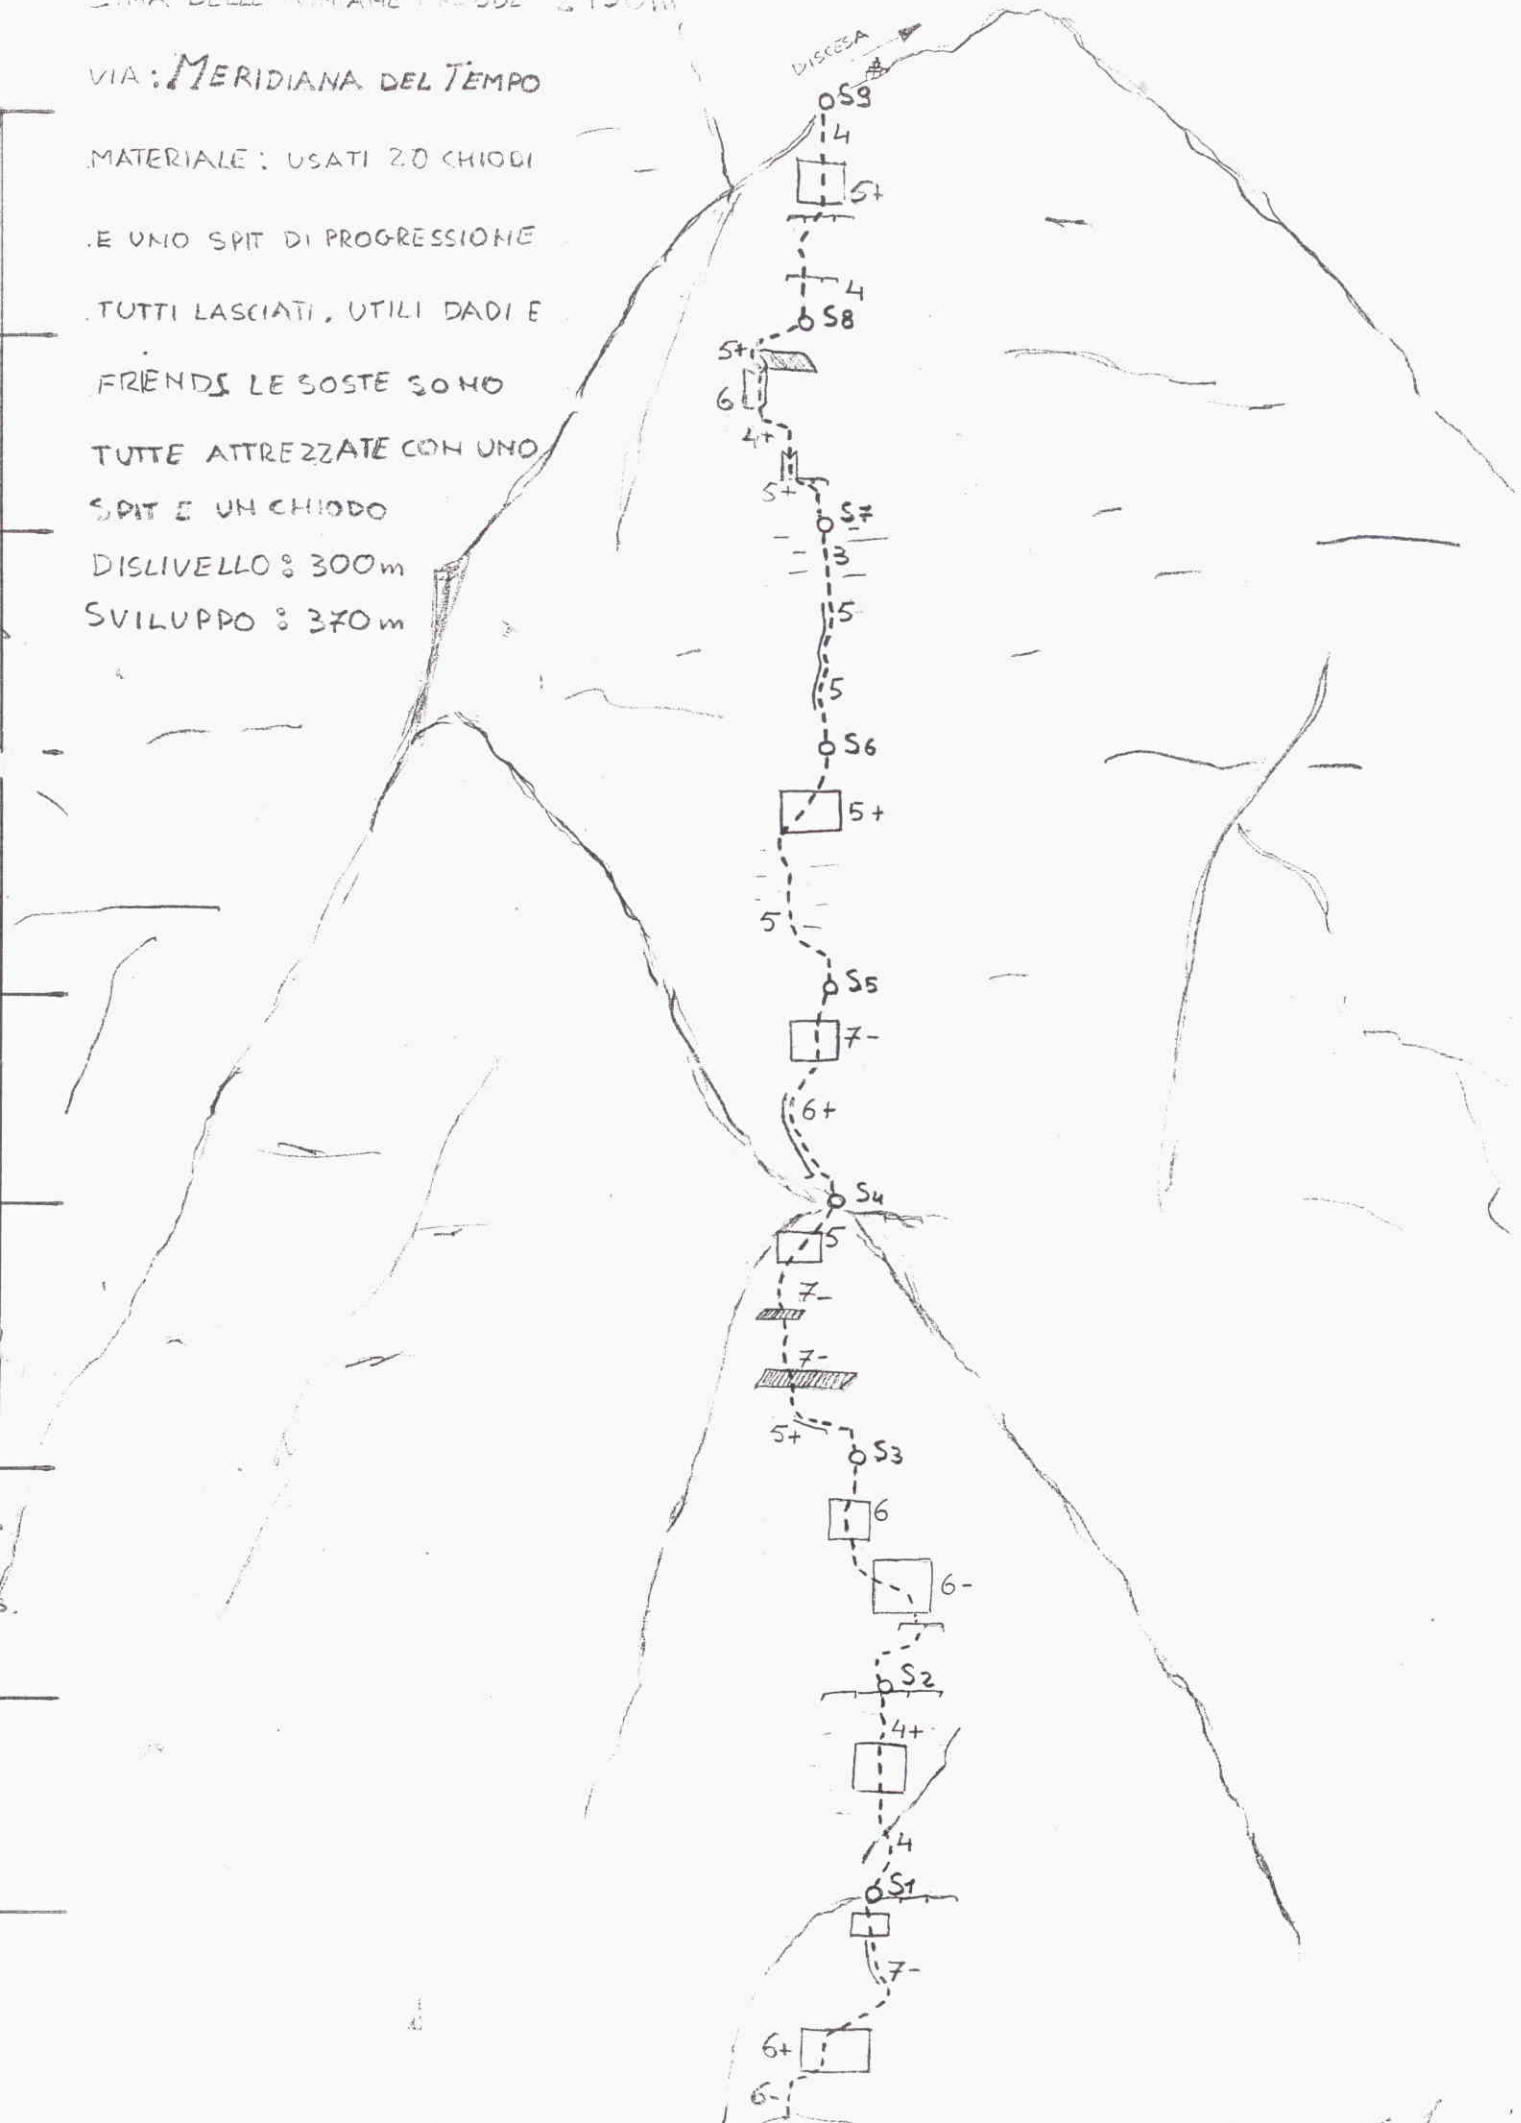 VIA: MERIDIANA DEL TEMPO
MATERIALE: USATI 20 CHIODI
E UNO SPIT DI PROGRESSIONE
TUTTI LASCIATI. UTILI DADI E
FRIENDS LE SOSTE SONO
TUTTE ATTREZZATE CON UNO
SPIT E UN CHIODO
DISLIVELLO: 300m
SVILUPPO: 370m
DISCESA
S9
4
5+
4
S8
5+
6
4+
5+
S7
3
5
5
S6
5+
5
S5
7-
6+
S4
5
7-
7-
5+
S3
6
6-
S2
4+
4
S1
7-
6+
6-